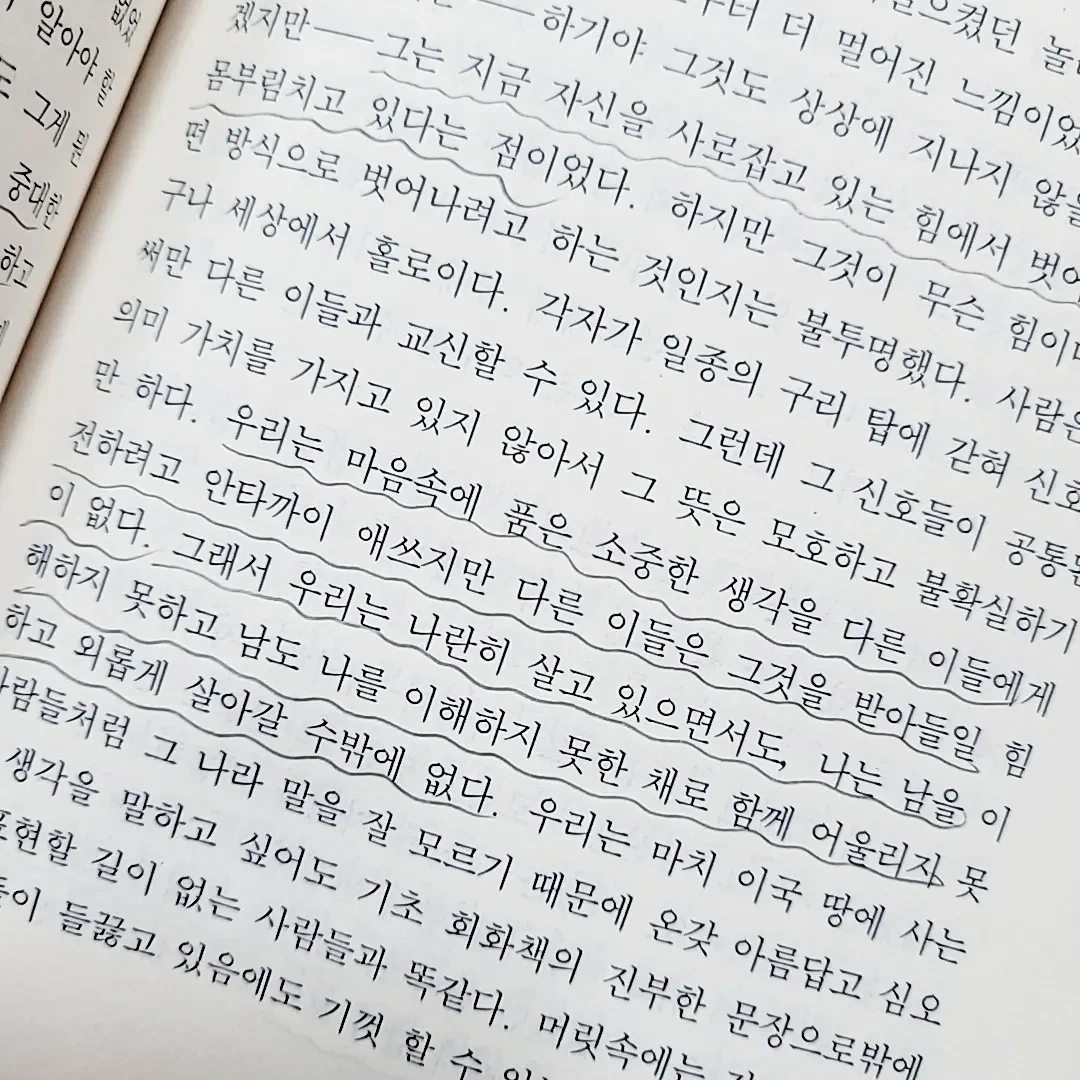 없었
알아야 할
도 그게 뭔
중대한
하고
더 멀어진 느낌이었
하기야 그것도 상상에 지나지 않을
겠지만――그는 지금 자신을 사로잡고 있는 힘에서 벗어
몸부림치고 있다는 점이었다. 하지만 그것이 무슨 힘이
떤 방식으로 벗어나려고 하는 것인지는 불투명했다. 사람은
구나 세상에서 홀로이다. 각자가 일종의 구리 탑에 갇혀 신호
써만 다른 이들과 교신할 수 있다. 그런데 그 신호들이 공통된
의미 가치를 가지고 있지 않아서 그 뜻은 모호하고 불확실하기
만 하다. 우리는 마음속에 품은 소중한 생각을 다른 이들에게
전하려고 안타까이 애쓰지만 다른 이들은 그것을 받아들일 힘
이 없다. 그래서 우리는 나란히 살고 있으면서도, 나는 남을 이
해하지 못하고 남도 나를 이해하지 못한 채로 함께 어울리지 못
하고 외롭게 살아갈 수밖에 없다. 우리는 마치 이국 땅에 사는
사람들처럼 그 나라 말을 잘 모르기 때문에 온갖 아름답고 심오
생각을 말하고 싶어도 기초 회화책의 진부한 문장으로밖에
표현할 길이 없는 사람들과 똑같다. 머릿속에는
들이 들끓고 있음에도 기껏 할 수